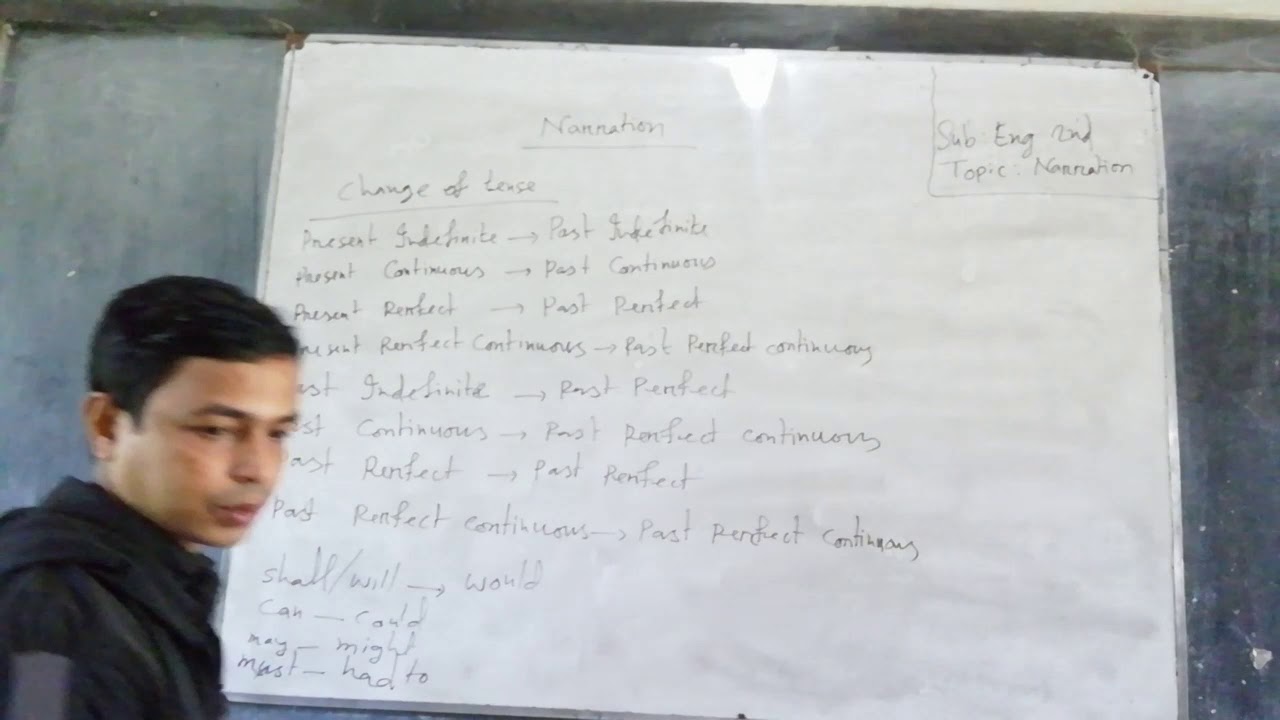 Narration
Sub: Eng 2nd
Topic: Narration
Change of tense
Present Indefinite → Past Indefinite
Present Continuous → Past Continuous
Present Perfect → Past Perfect
resent Perfect Continuous → Past Perfect continuous
ast Indefinite → Past Perfect
st Continuous → Past Perfect continuous
ast Perfect → Past Perfect
Past Perfect continuous → Past Perfect Continuous
shall/will → would
Can — could
may — might
must — had to